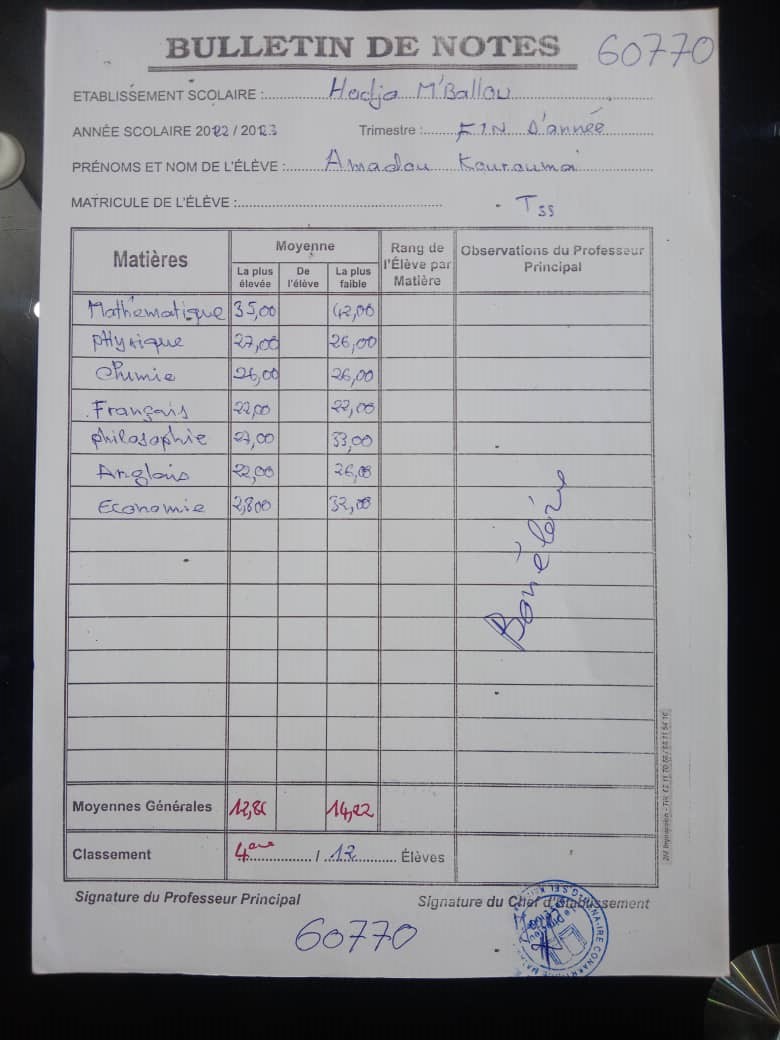 BULLETIN DE NOTES 60770
ETABLISSEMENT SCOLAIRE : Hadja M'Ballou
ANNÉE SCOLAIRE 2022 / 2023 Trimestre : FIN D'année
PRÉNOMS ET NOM DE L'ÉLÈVE : Amadou Kourouma
MATRICULE DE L'ÉLÈVE : Tss
Matières Moyenne Rang de l'Élève par Matière Observations du Professeur Principal
La plus élevée De l'élève La plus faible
Mathématique 35,00 42,00
pHysique 27,00 26,00
Chimie 26,00 26,00
Français 22,00 22,00
philosophie 27,00 33,00
Anglais 22,00 26,00
Economie 2,800 32,00
Bon élève
Moyennes Générales 12,86 14,22
Classement 4eme / 12 Élèves
Signature du Professeur Principal Signature du Chef d'Établissement
60770